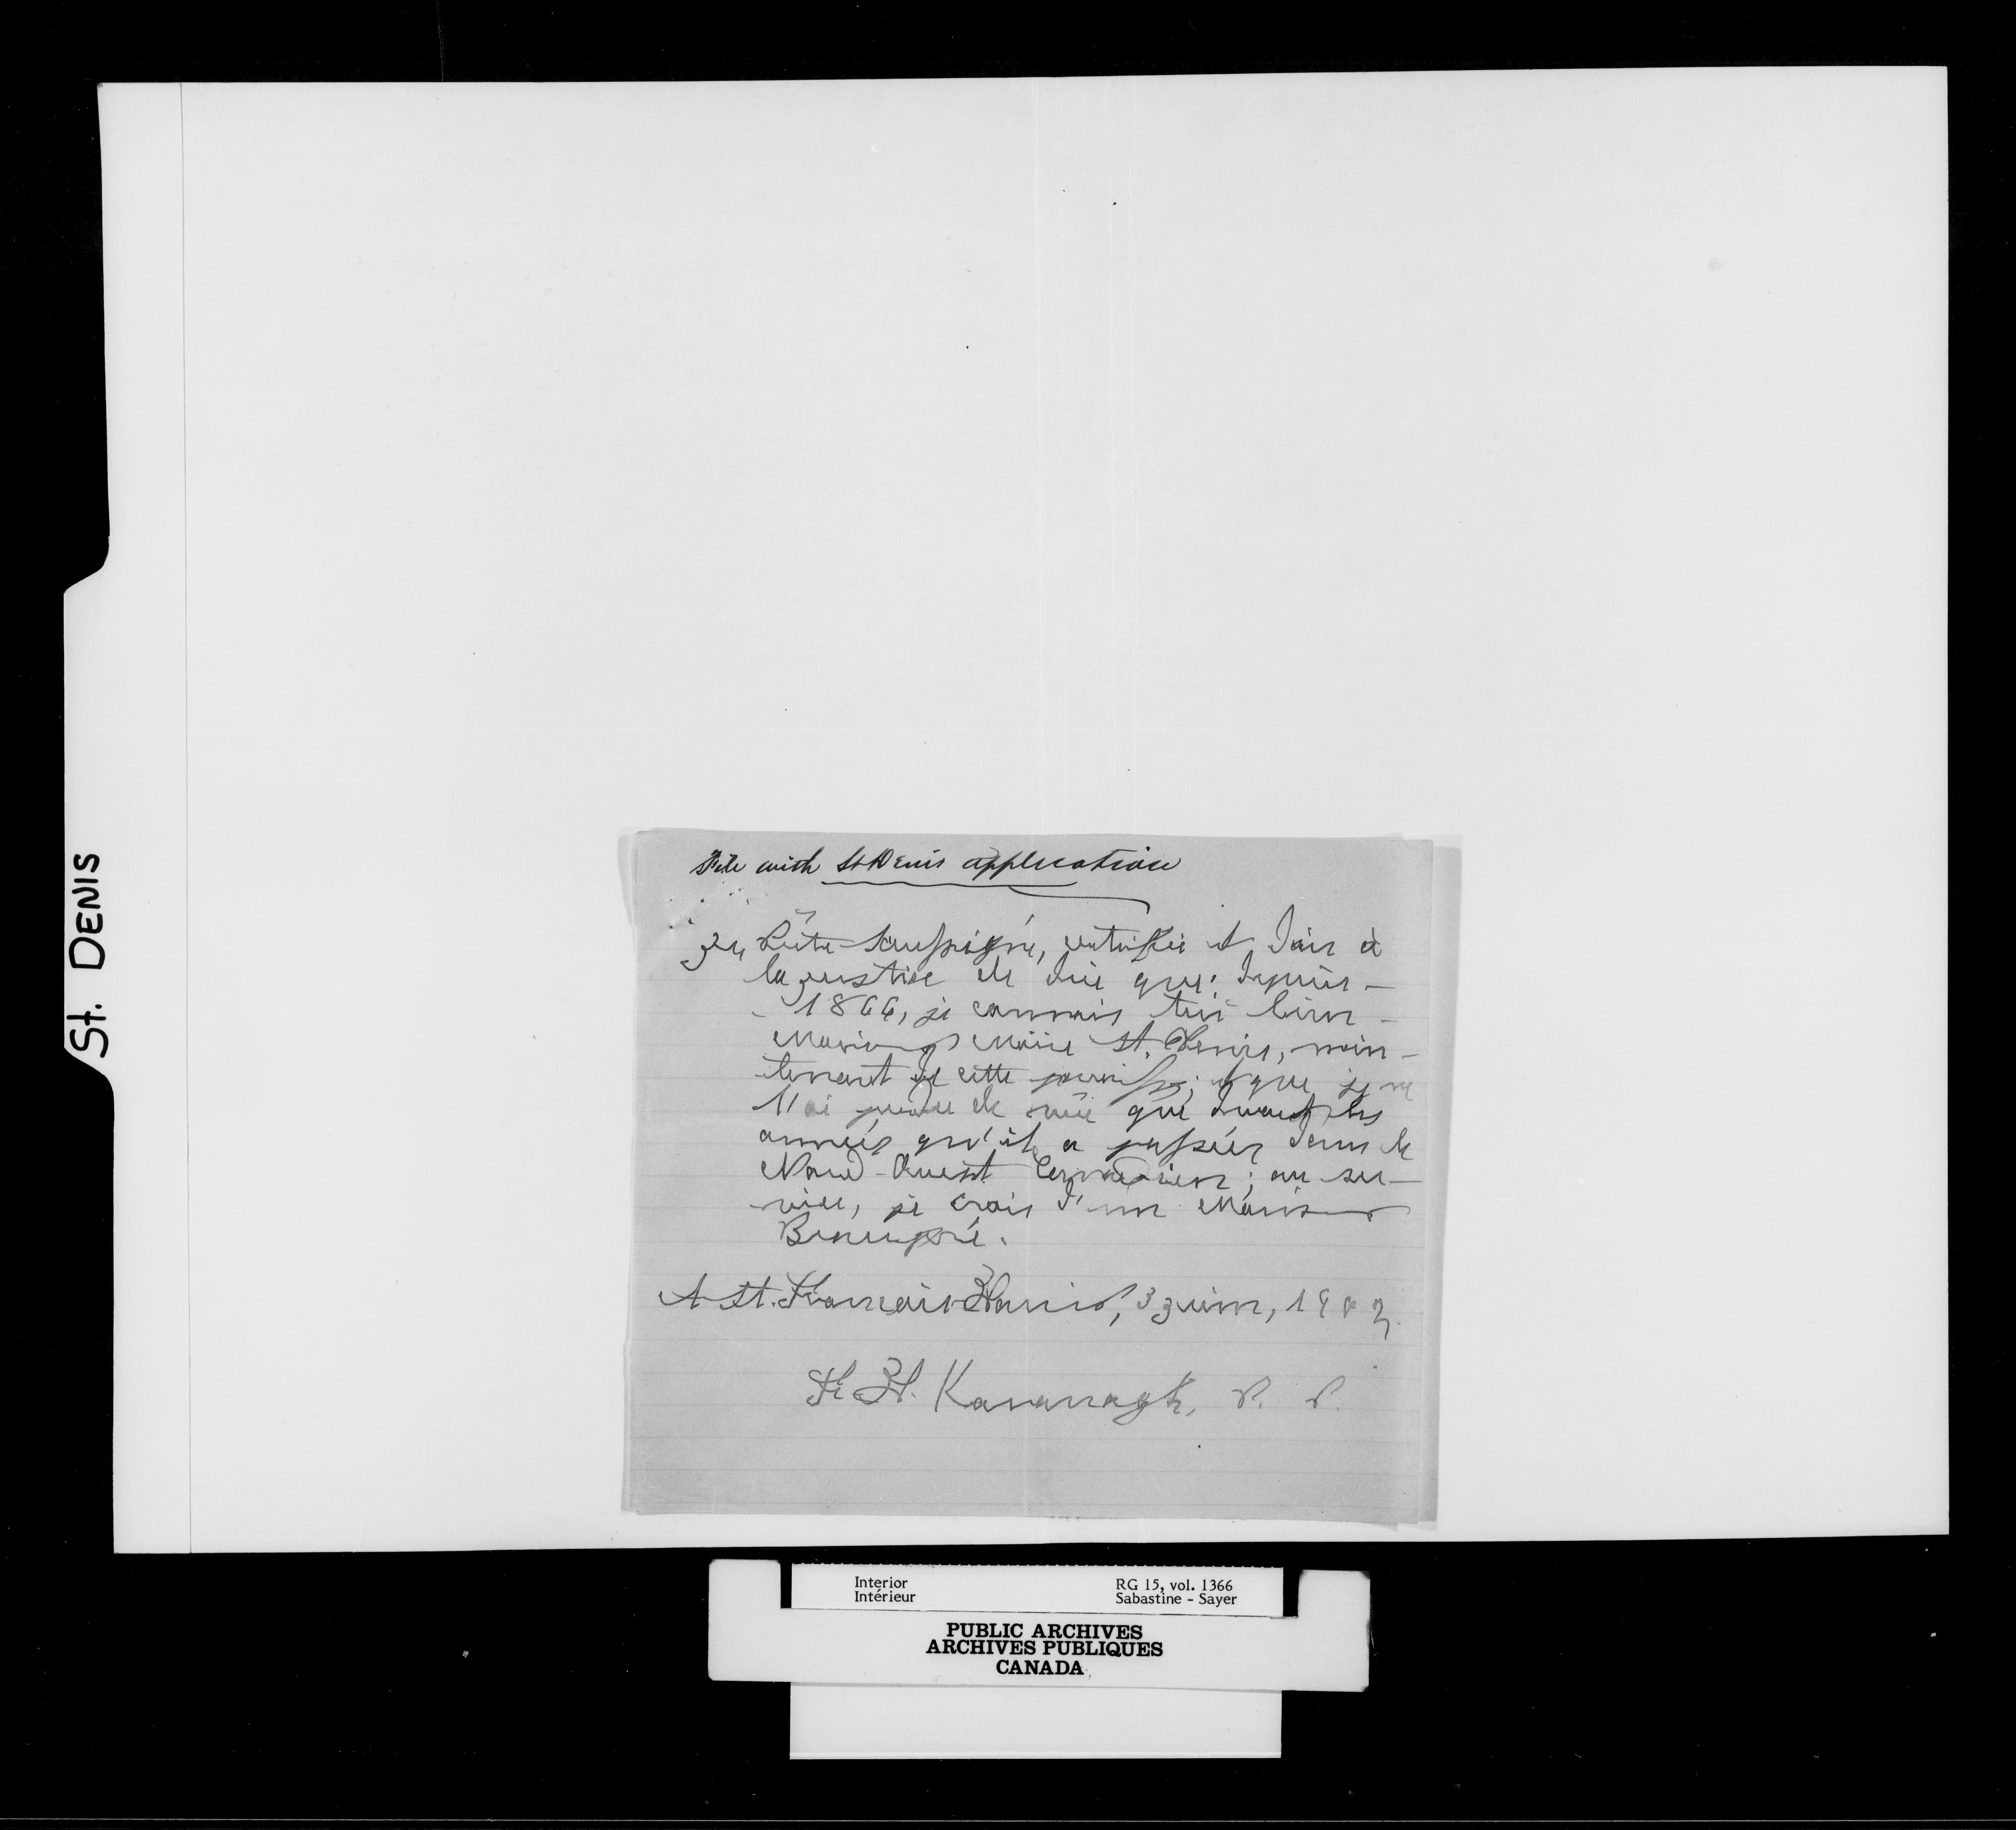 St. DENIS
File with St Denis application
Je, Prêtre soussigné, certifie et dois à
la justice de dire que: depuis -
- 1866, je connais très bien -
Moïse St. Denis, main-
tenant de cette paroisse; et que je ne
l'ai perdu de vue que durant les
années qu'il a passées dans le
Nord-Ouest Canadien; au ser-
vice, je crois d'un Monsieur
Beaupré.
A St. François-Xavier, 3 juin, 1902.
Fr. X. Kavanagh, P. P.
Interior
Intérieur
RG 15, vol. 1366
Sabastine - Sayer
PUBLIC ARCHIVES
ARCHIVES PUBLIQUES
CANADA